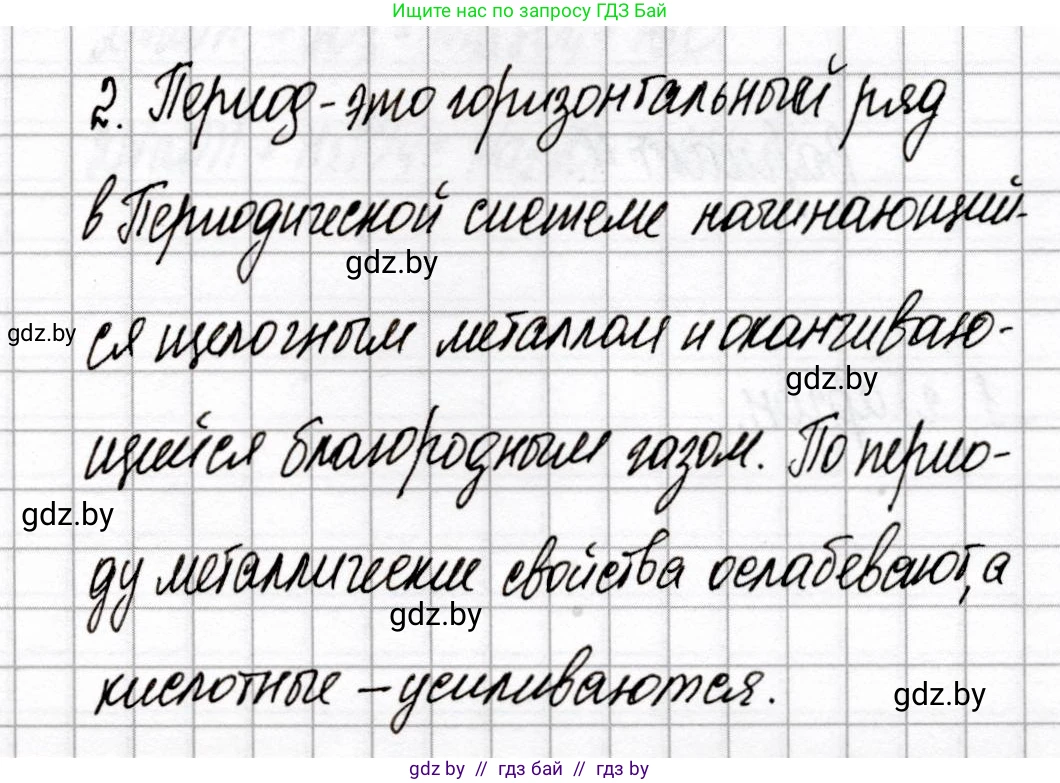 Ищите нас по запросу ГДЗ Бай
2. Период - это горизонтальный ряд
в Периодической системе начинающий-
gdz.by
gdz.by
ся щелочным металлом и оканчиваю-
gdz.by
щийся благородным газом. По перио-
gdz.by
ду металлические свойства ослабевают, а
gdz.by
кислотные – усиливаются.
gdz.by
gdz by // гдз бай // gdz by